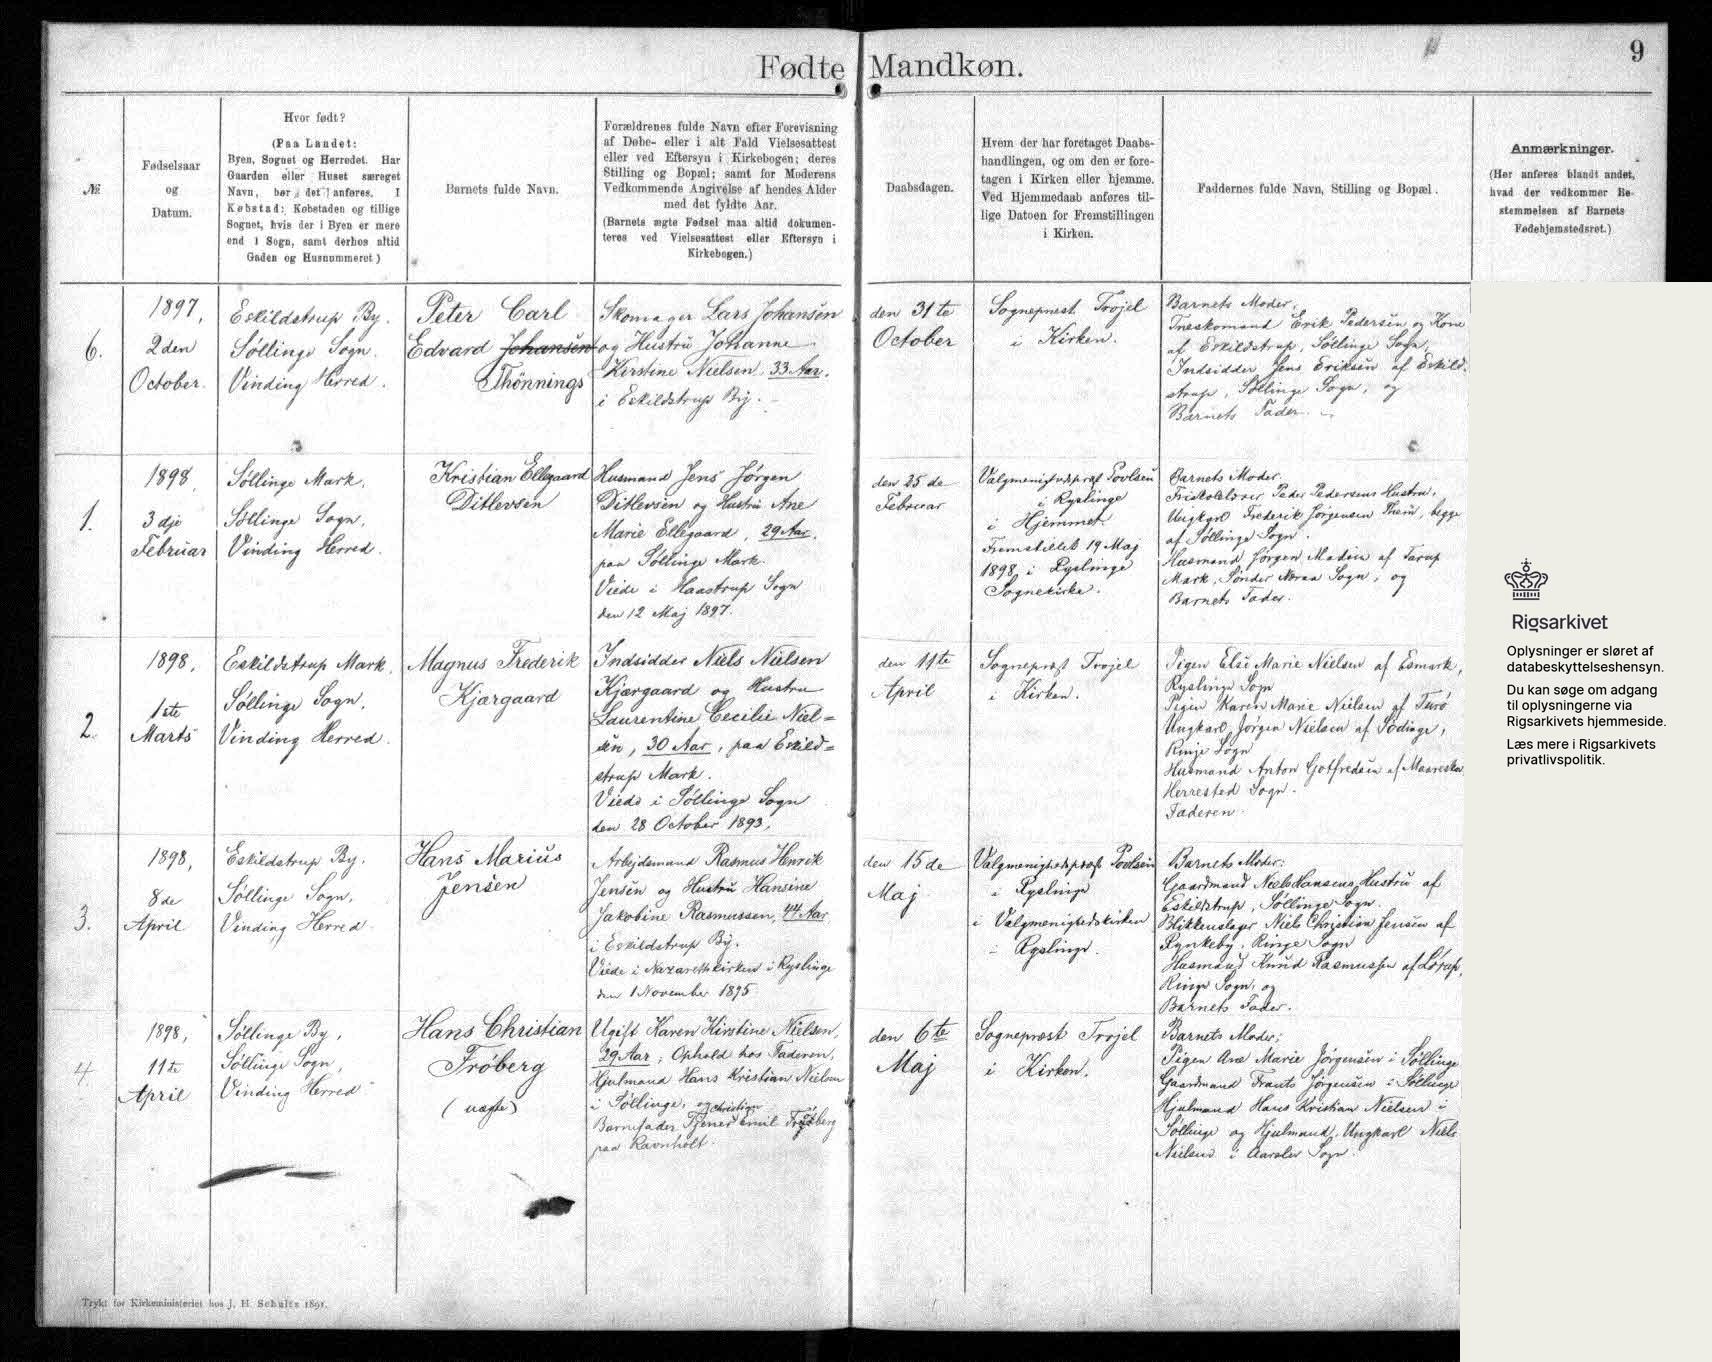 Fødte Mandkøn.
9
№
Fødselsaar
og
Datum.
Hvor født?
(Paa Landet:
Byen, Sognet og Herredet. Har
Gaarden eller Huset særeget
Navn, bør det anføres. I
Købstad: Købstaden og tillige
Sognet, hvis der i Byen er mere
end 1 Sogn, samt derhos altid
Gaden og Husnummeret)
Barnets fulde Navn.
Forældrenes fulde Navn efter Forevisning
af Døbe- eller i alt Fald Vielsesattest
eller ved Eftersyn i Kirkebogen; deres
Stilling og Bopæl; samt for Moderens
Vedkommende Angivelse af hendes Alder
med det fyldte Aar.
(Barnets ægte Fødsel maa altid dokumen-
teres ved Vielsesattest eller Eftersyn i
Kirkebogen.)
Daabsdagen.
Hvem der har foretaget Daabs-
handlingen, og om den er fore-
tagen i Kirken eller hjemme.
Ved Hjemmedaab anføres til-
lige Datoen for Fremstillingen
i Kirken.
Faddernes fulde Navn, Stilling og Bopæl.
Anmærkninger.
(Her anføres blandt andet,
hvad der vedkommer Be-
stemmelsen af Barnets
Fødehjemstedsret.)
6.
1897,
2den
October.
Eskildstrup By.
Søllinge Sogn.
Vinding Herred.
Peter Carl
Edvard Johansen
Thönnings
Skomager Lars Johansen
og Hustru Johanne
Kirstine Nielsen, 33 Aar.
i Eskildstrup By.
den 31te
October
Sognepræst Trojel
i Kirken.
Barnets Moder,
Træskomand Erik Pedersen og Kone
af Eskildstrup, Søllinge Sogn,
Indsidder Jens Eriksen af Eskild-
strup, Søllinge Sogn, og
Barnets Fader.
1.
1898
3dje
Februar
Søllinge Mark,
Søllinge Sogn,
Vinding Herred.
Kristian Ellegaard
Ditlevsen
Husmand Jens Jørgen
Ditlevsen og Hustru Ane
Marie Ellegaard, 29 Aar,
paa Søllinge Mark.
Viede i Haastrup Sogn
den 12 Maj 1897.
den 25de
Februar
Valgmenighedspræst Povlsen
i Ryslinge
i Hjemmet.
Fremstillet 19 Maj
1898 i Ryslinge
Sognekirke.
Barnets Moder,
Friskolelærer Peder Pedersens Hustru,
Ungkarl Frederik Jørgensen, begge
af Søllinge Sogn.
Husmand Jørgen Madsen af Tarup
Mark, Sønder Næraa Sogn, og
Barnets Fader.
2.
1898,
1ste
Marts
Eskildstrup Mark,
Søllinge Sogn,
Vinding Herred.
Magnus Frederik
Kjærgaard
Indsidder Niels Nielsen
Kjærgaard og Hustru
Laurentine Cecilie Niel=
sen, 30 Aar, paa Eskild=
strup Mark.
Viede i Søllinge Sogn
den 28 October 1893.
den 11te
April
Sognepræst Trojel
i Kirken.
Pigen Else Marie Nielsen af Esmark,
Ryslinge Sogn
Pigen Karen Marie Nielsen af Turø
Ungkarl Jørgen Nielsen af Sødinge,
Ringe Sogn
Husmand Anton Gotfredsen af
Herrested Sogn.
Faderen
3.
1898,
8de
April
Eskildstrup By.
Søllinge Sogn,
Vinding Herred.
Hans Marius
Jensen
Arbejdsmand Rasmus Henrik
Jensen og Hustru Hansine
Jakobine Rasmussen, 44 Aar,
i Eskildstrup By.
Viede i Nazarethkirken i Ryslinge
den 1 November 1895
den 15de
Maj
Valgmenighedspræst Povlsen
i Ryslinge
i Valgmenighedskirken
i Ryslinge.
Barnets Moder;
Gaardmand Niels Hansens Hustru af
Eskildstrup, Søllinge Sogn.
Blikkenslager Niels Christian Jensen af
Rynkeby, Ringe Sogn
Husmand Knud Rasmussen af Lørup,
Ringe Sogn, og
Barnets Fader.
4.
1898,
11te
April
Søllinge By,
Søllinge Sogn,
Vinding Herred
Hans Christian
Frøberg
(uægte)
Ugift Karen Kirstine Nielsen,
29 Aar; Ophold hos Faderen,
Hjulmand Hans Kristian Nielsen
i Søllinge, og
Christian
Barnefader Tjener Emil Frøberg
paa Ravnholt.
den 6te
Maj
Sognepræst Trojel
i Kirken.
Barnets Moder;
Pigen Ane Marie Jørgensen i Søllinge
Gaardmand Frants Jørgensen i Søllinge
Hjulmand Hans Kristian Nielsen i
Søllinge og Hjulmand, Ungkarl Niels
Nielsen i Aarslev Sogn.
Trykt for Kirkeministeriet hos J. H. Schultz 1891.
Rigsarkivet
Oplysninger er sløret af
databeskyttelseshensyn.
Du kan søge om adgang
til oplysningerne via
Rigsarkivets hjemmeside.
Læs mere i Rigsarkivets
privatlivspolitik.